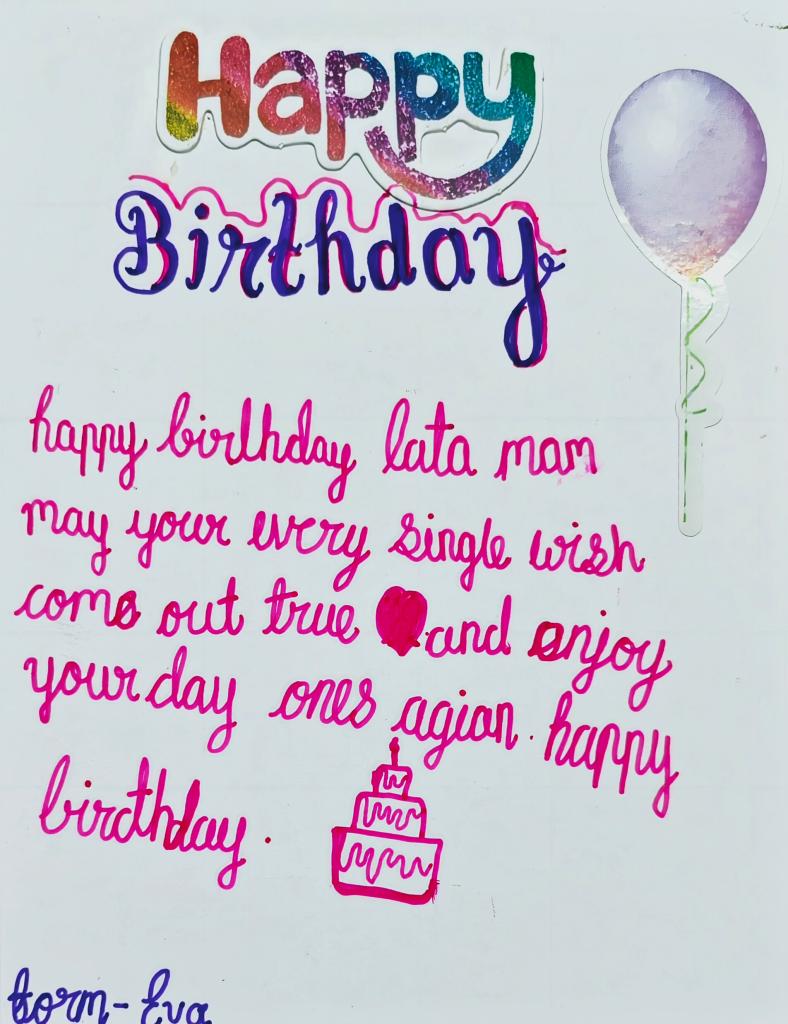 Happy
Birthday
happy birthday lata man
may your every single wish
come out true and enjoy
your day ones agian. happy
birthday.
form - Eva